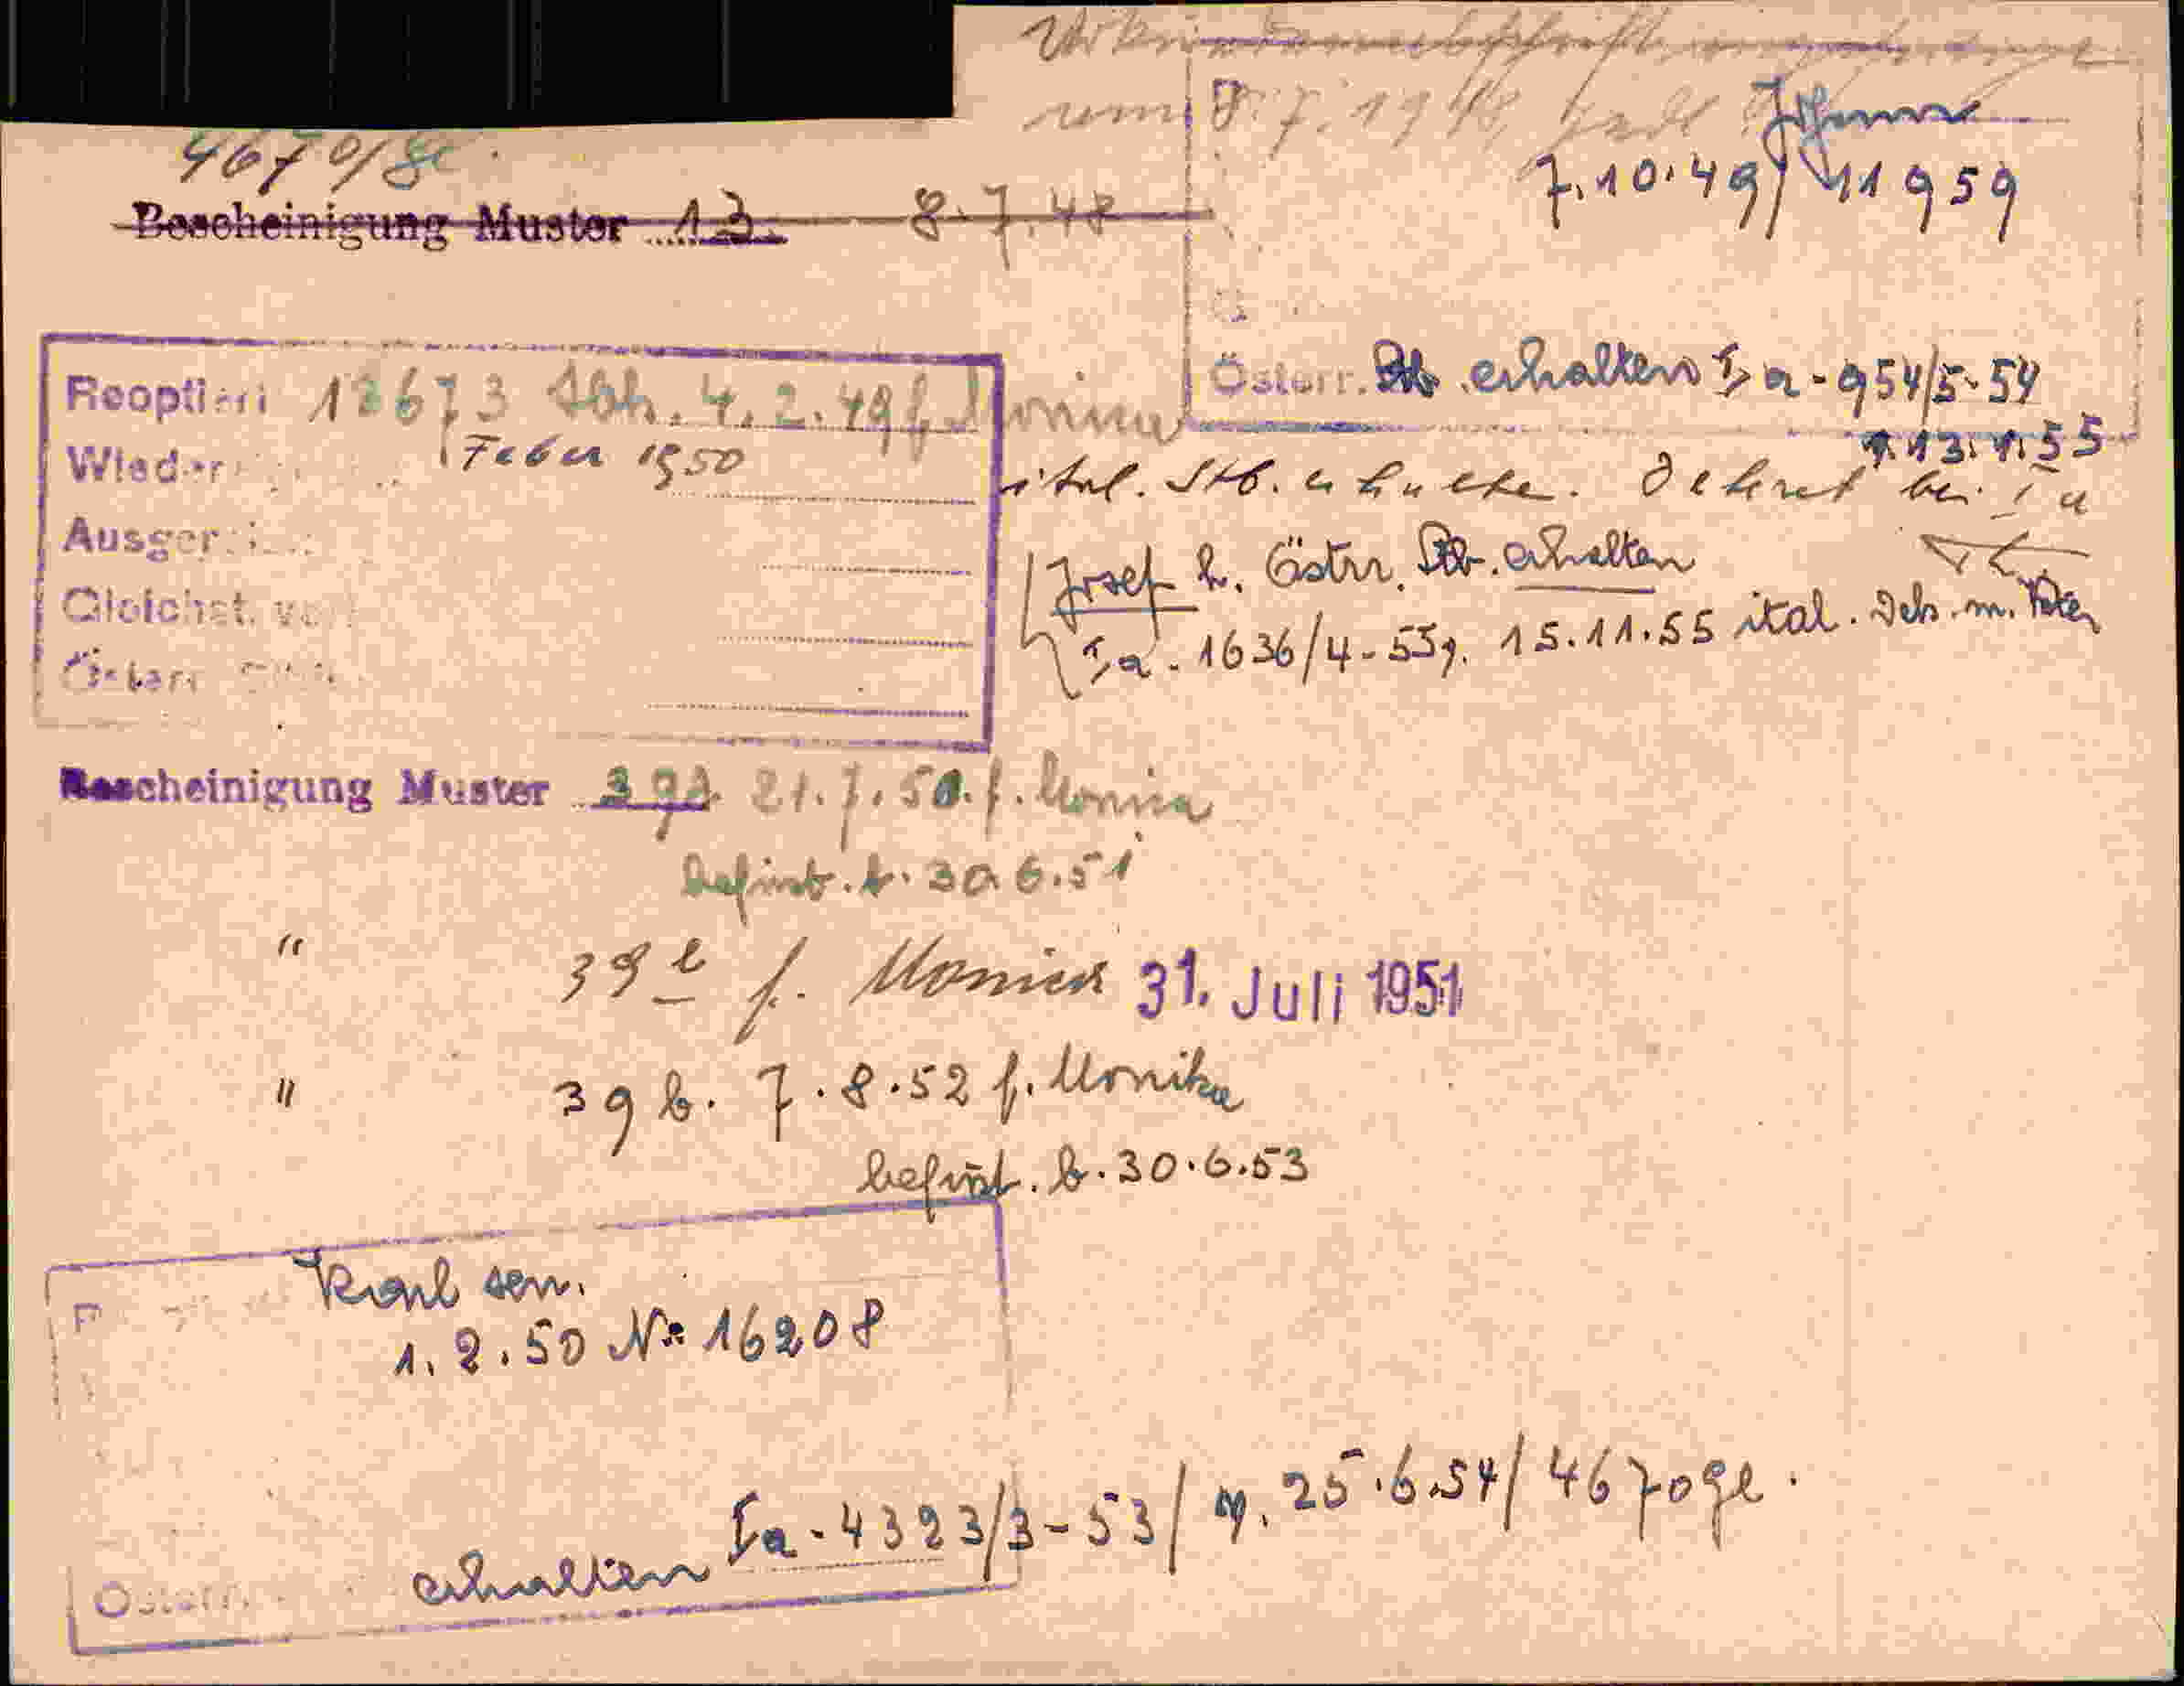 um 8.7.1948
Johann
7.10.49/11959
4670/ge
Bescheinigung Muster 13. 8.7.48
Österr. Stb. erhalten Ia-954/5-54
v. 13.1.55
Reoptiert 12673 Abh. 4.2.49 f. Monica
Wieder Feber 1950
ital. Stb. erhalten. Dekret bei Ia
Ausger
Josef h. Östrr. Stb. erhalten
Gleichst. v
Ia-1636/4-55 v. 15.11.55 ital. Dek. m.
Österr
Bescheinigung Muster 39 21.7.50. f. Monica
befrist. b. 30.6.51
" 39 b f. Monica 31. Juli 1951
" 39 b. 7.8.52 f. Monika
befrist. b. 30.6.53
Karl sen.
1.2.50 No 16208
Ia-4323/3-53/ v. 25.6.54/4670ge.
Österr. erhalten